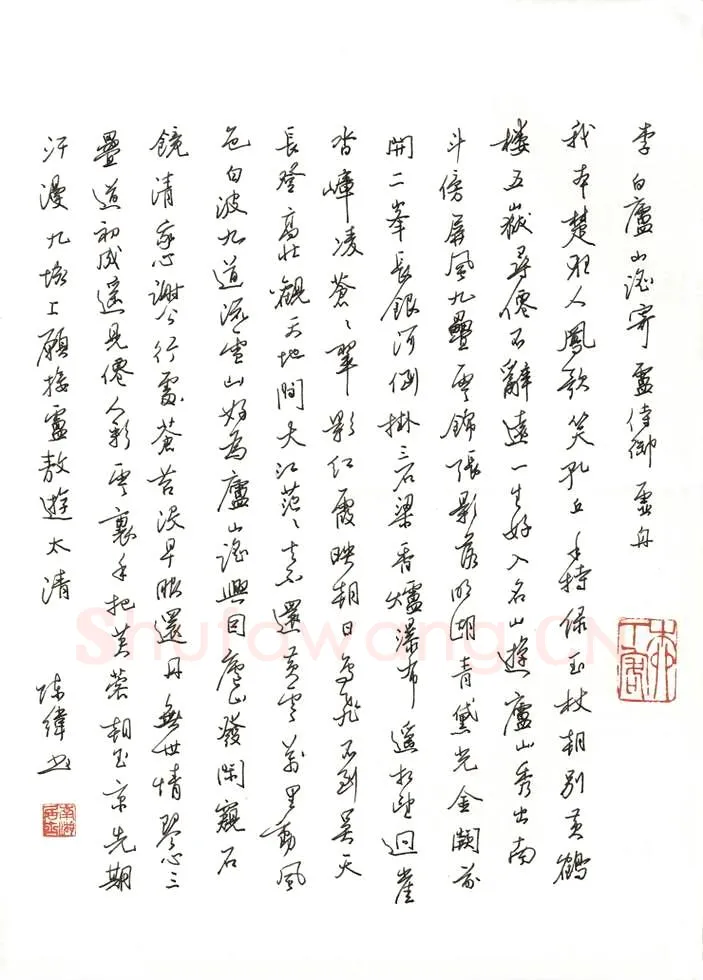 李白廬山謠寄盧侍御虛舟
我本楚狂人鳳歌笑孔丘手持綠玉杖朝別黃鶴
樓五嶽尋僊不辭遠一生好入名山遊廬山秀出南
斗傍屏風九疊雲錦張影落明湖青黛光金闕前
開二峯長銀河倒掛三石梁香爐瀑布遙相望迴崖
沓嶂凌蒼〻翠影紅霞映朝日鳥飛不到吳天
長登高壯觀天地間大江茫〻去不還黃雲萬里動風
色白波九道流雪山好為廬山謠興因廬山發閑窺石
鏡清我心謝公行處蒼苔沒早服還丹無世情琴心三
疊道初成遙見僊人彩雲裏手把芙蓉朝玉京先期
汗漫九垓上願接盧敖遊太清
陳緯書
Shufawang.CN